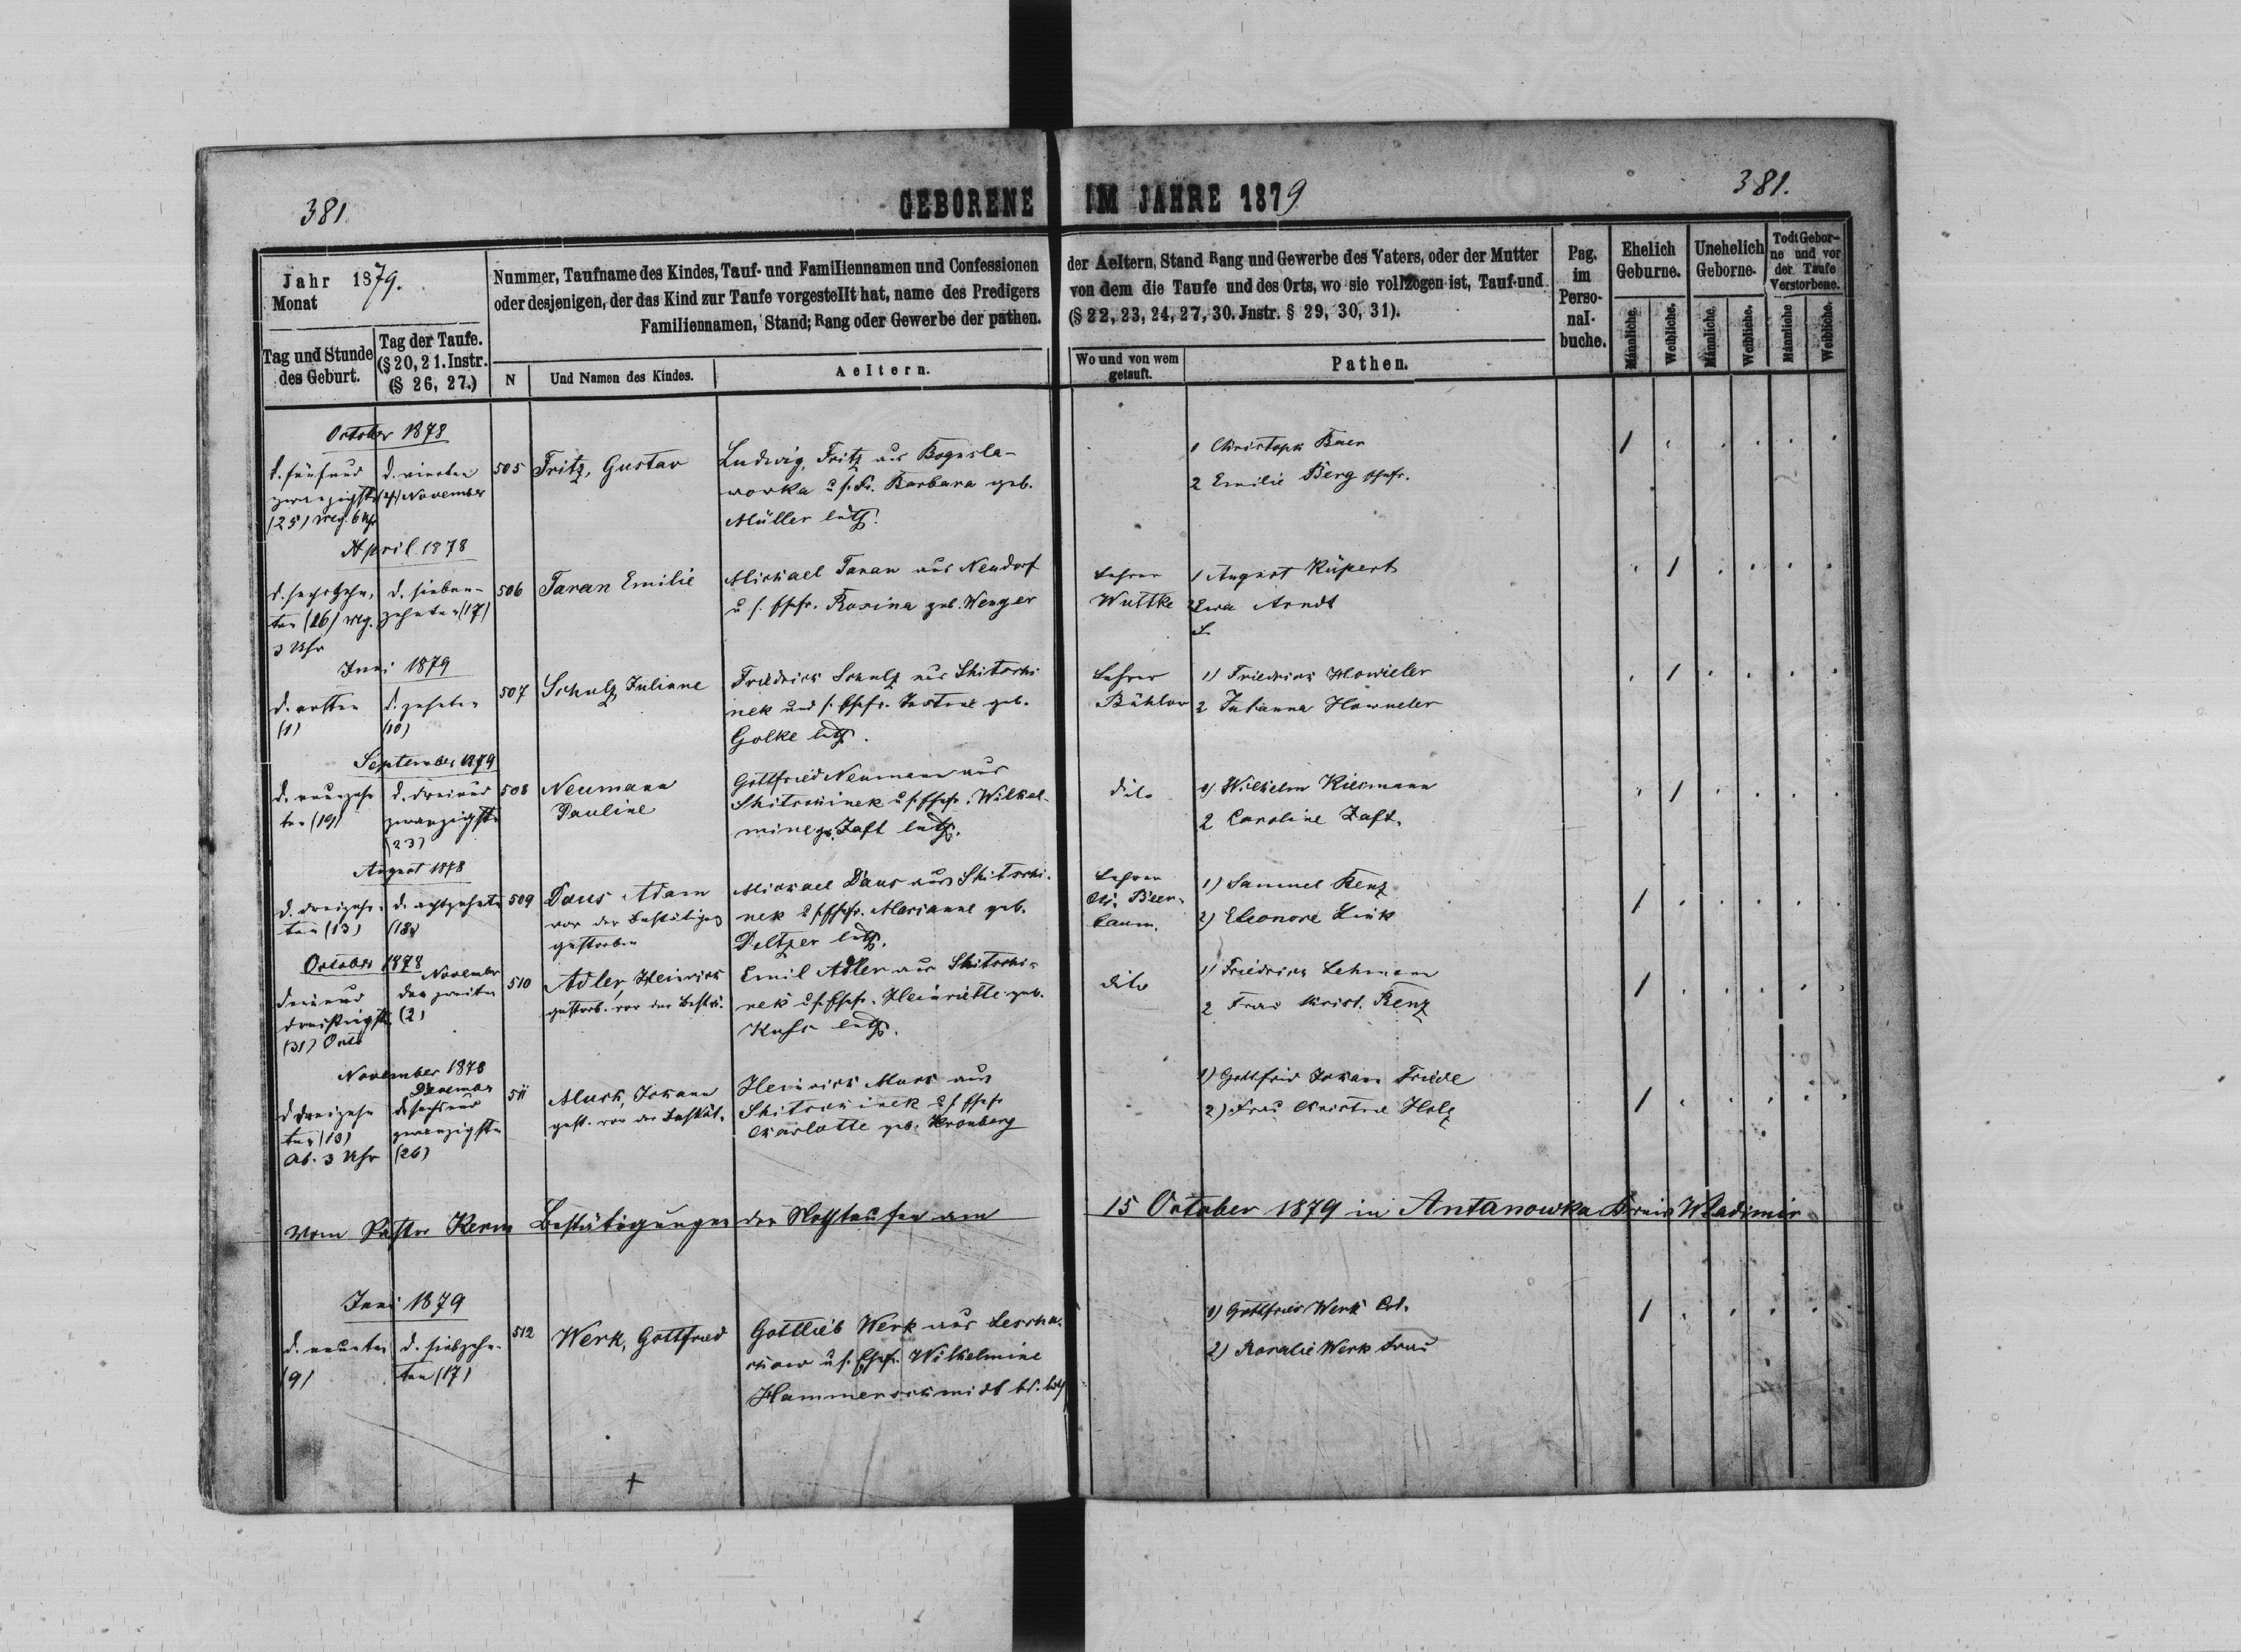 381.
381.
GEBORENE IM JAHRE 1879
Jahr 1879.
Monat
Nummer, Taufname des Kindes, Tauf- und Familiennamen und Confessionen
oder desjenigen, der das Kind zur Taufe vorgestellt hat, name des Predigers
Familiennamen, Stand; Rang oder Gewerbe der pathen.
der Aeltern, Stand Rang und Gewerbe des Vaters, oder der Mutter
von dem die Taufe und des Orts, wo sie vollzogen ist, Tauf-und
(§ 22, 23, 24, 27, 30. Jnstr. § 29, 30, 31).
Pag.
im
Perso-
nal-
buche.
Ehelich
Geburne.
Unehelich
Geborne.
Todt Gebor-
ne und vor
der Taufe
Verstorbene.
Tag und Stunde
des Geburt.
Tag der Taufe.
(§ 20, 21. Instr.
(§ 26, 27.)
N
Und Namen des Kindes.
Aeltern.
Wo und von wem
getauft.
Pathen.
Männliche.
Weibliche.
Männliche.
Weibliche.
Männliche
Weibliche.
October 1878
d. fünfund
zwanzigste
(25) Mrg. 6 Uhr
d. vierten
(4) November
505
Fritz, Gustav
Ludwig Fritz aus Bogusla-
wowka u. s. Fr. Barbara geb.
Müller luth.
1 Christoph Baer
2 Emilie Berg Ehefr.
1
April 1878
d. sechszehn-
ten (16) Mrg.
3 Uhr
d. sieben-
zehnten (17)
506
Taran Emilie
Michael Taran aus Neudorf
u s. Ehefr. Rosina geb. Wenger
Lehrer
Wuttke
1 August Rüpert
2 Ewa Arndt
1
Juni 1879
d. ersten
(1)
d. zehnten
(10)
507
Schulz Juliane
Friedrich Schulz aus Shitschi
nek und s. Ehefr. Justine geb.
Golke luth.
Lehrer
Bühlow
1) Friedrich
2 Julianna
1
September 1879
d. neunzehn
ten (19)
d. dreiund
zwanzigste
(23)
508
Neumann
Pauline
Gottfried Neumann aus
Shitschinek u s. Ehefr. Wilhel-
mine geb. Zaft luth.
dito
1) Wilhelm Kiesmann
2 Caroline Zaft.
1
August 1878
d. dreizehn-
ten (13)
d. achtzehnte
(18)
509
Daus Adam
vor der Bestätigung
gestorben
Michael Daus aus Shitschi-
nek u s. Ehefr. Marianne geb.
Deltzer luth.
Lehrer
Beer-
baum.
1) Samuel Renz
2) Eleonore Link
1
October 1878
dreißigste
(31) Octo
November
den zweiten
(2)
510
Adler, Heinrich
gestorb. vor der Bestä.
Emil Adler aus Shitschi-
nek u s. Ehefr. Heinriette geb.
Kuhs luth.
dito
1) Friedrich Lehmann
2 Frau Christ. Renz
1
November 1878
d. dreizehn
ten (13)
Ab. 3 Uhr
December
d. sechsund
zwanzigsten
(26)
511
Mark, Johann
gest. vor der Bestät.
Heinrich Mark aus
Shitschinek u s. Ehefr.
Charlotte geb. Kronberg
1) Gottfried Johann Friede
2) Frau Christine Holz
1
Vom Pastor Kerm Bestätigungen der Nothtaufen am 15 October 1879 in Antanowka Kreis Wladimir
Juni 1879
d. neunten
(9)
d. siebzehn-
ten (17)
512
Werk, Gottfried
Gottlieb Werk aus Lescha-
chow u s. Ehefr. Wilhelmine
Hammerschmidt bd. luth
1) Gottfried Werk Col.
2) Rosalie Werk Frau
1